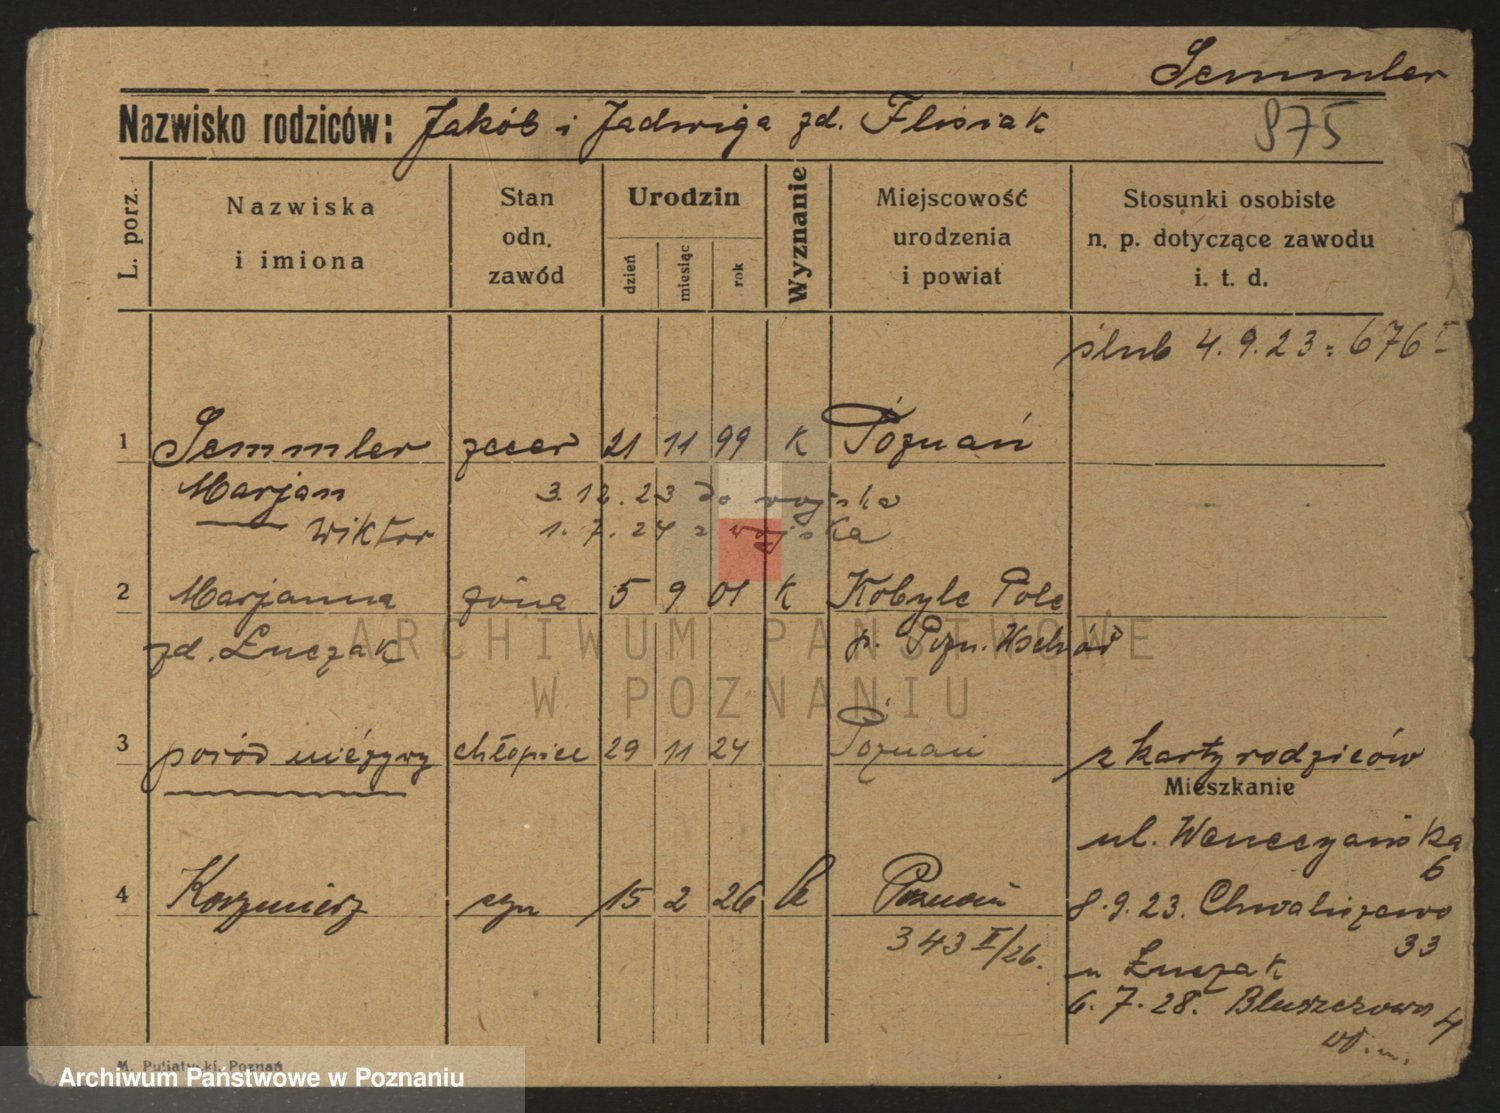 Semmler
Nazwisko rodziców: Jakób i Jadwiga zd. Flisiak
975
L. porz.
Nazwiska
i imiona
Stan
odn.
zawód
Urodzin
dzień
miesiąc
rok
Wyznanie
Miejscowość
urodzenia
i powiat
Stosunki osobiste
n. p. dotyczące zawodu
i. t. d.
ślub 4.9.23 = 676 I
1 Semmler zecer 21 11 99 K Poznań
Marjan 3.12.23 do wojska
Wiktor 1.7.24 z wojska
2 Marjanna żona 5 9 01 K Kobyle Pole
zd. Łuczak p. Pozn. Wschód
3 poród nieżywy chłopiec 29 11 24 Poznań z karty rodziców
Mieszkanie
ul. Wenecjańska
6
4 Kazimierz syn 15 2 26 k Poznań 8.9.23. Chwaliszewo
343 II/26. 33
u Łuczak
6.7.28. Bluszczowa 4
M. Putiatycki, Poznań
ARCHIWUM PAŃSTWOWE
W POZNANIU
Archiwum Państwowe w Poznaniu